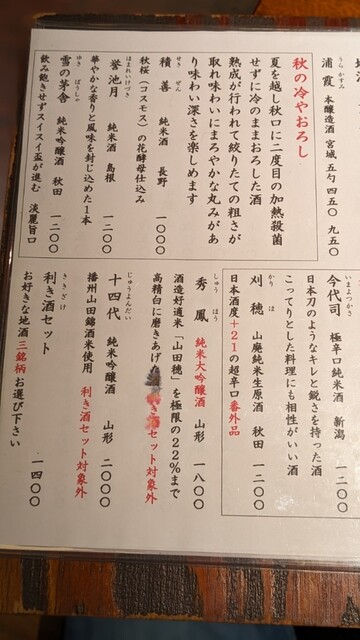 浦霞 本醸造酒 宮城 五勺 四五〇 九五〇
うら かすみ
秋の冷やおろし
夏を越し秋口に二度目の加熱殺菌
せずに冷のままおろした酒
熟成が行われて絞りたての粗さが
取れ味わいにまろやかな丸みがあ
り味わい深さを楽しめます
積善 純米酒 長野 一〇〇〇
せき ぜん
秋桜（コスモス）の花酵母仕込み
誉池月 純米酒 島根 一二〇〇
ほまれいけづき
華やかな香りと風味を封じ込めた1本
雪の茅舎 純米吟醸酒 秋田 一二〇〇
ゆき ぼうしゃ
飲み飽きせずスイスイ盃が進む 淡麗旨口
今代司 極辛口純米酒 新潟 一二〇〇
いまよつかさ
日本刀のようなキレと鋭さを持った酒
こってりとした料理にも相性がいい酒
刈穂 山廃純米生原酒 秋田 一二〇〇
かり ほ
日本酒度＋21の超辛口 番外品
秀鳳 純米大吟醸酒 山形 一八〇〇
しゅう ほう
酒造好適米「山田穂」を極限の22％まで
高精白に磨きあげ き酒セット対象外
十四代 純米吟醸酒 山形 二〇〇〇
じゅうよんだい
播州山田錦酒米使用 利き酒セット対象外
利き酒セット 一四〇〇
ききざけ
お好きな地酒三銘柄お選び下さい